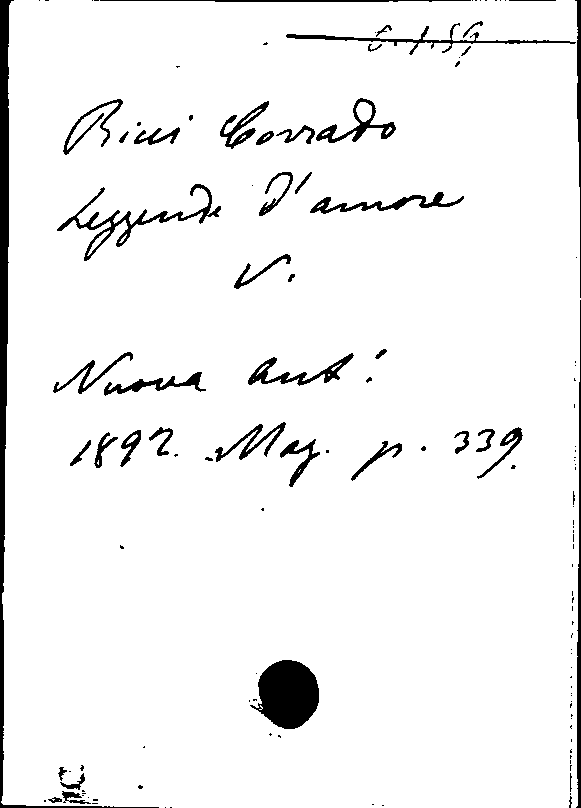 6.1.59
Ricci Corrado
Leggende d'amore
V.
Nuova Ant:
1892. Mag. p. 339.